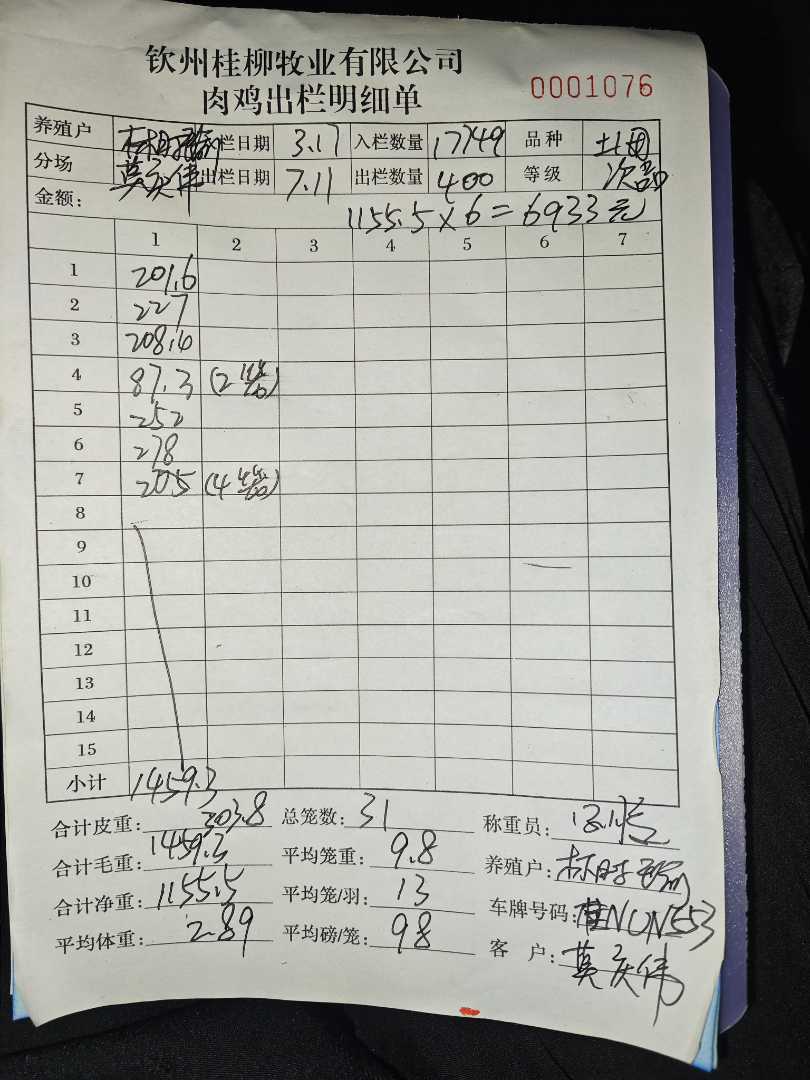 钦州桂柳牧业有限公司
肉鸡出栏明细单
0001076
养殖户 栏日期 3.17 入栏数量 17749 品种
分场 莫庆伟 出栏日期 7.11 出栏数量 400 等级 次品
金额: 1155.5×6=6933元
1 2 3 4 5 6 7
1 201.6
2 227
3 208.4
4 87.3 (2笼)
5 252
6 278
7 205 (4笼)
8
9
10
11
12
13
14
15
小计 1459.3
合计皮重: 303.8 总笼数: 31 称重员:
合计毛重: 1459.3 平均笼重: 9.8 养殖户:
合计净重: 1155.5 平均笼/羽: 13 车牌号码:
平均体重: 2.89 平均磅/笼: 98 客 户: 莫庆伟